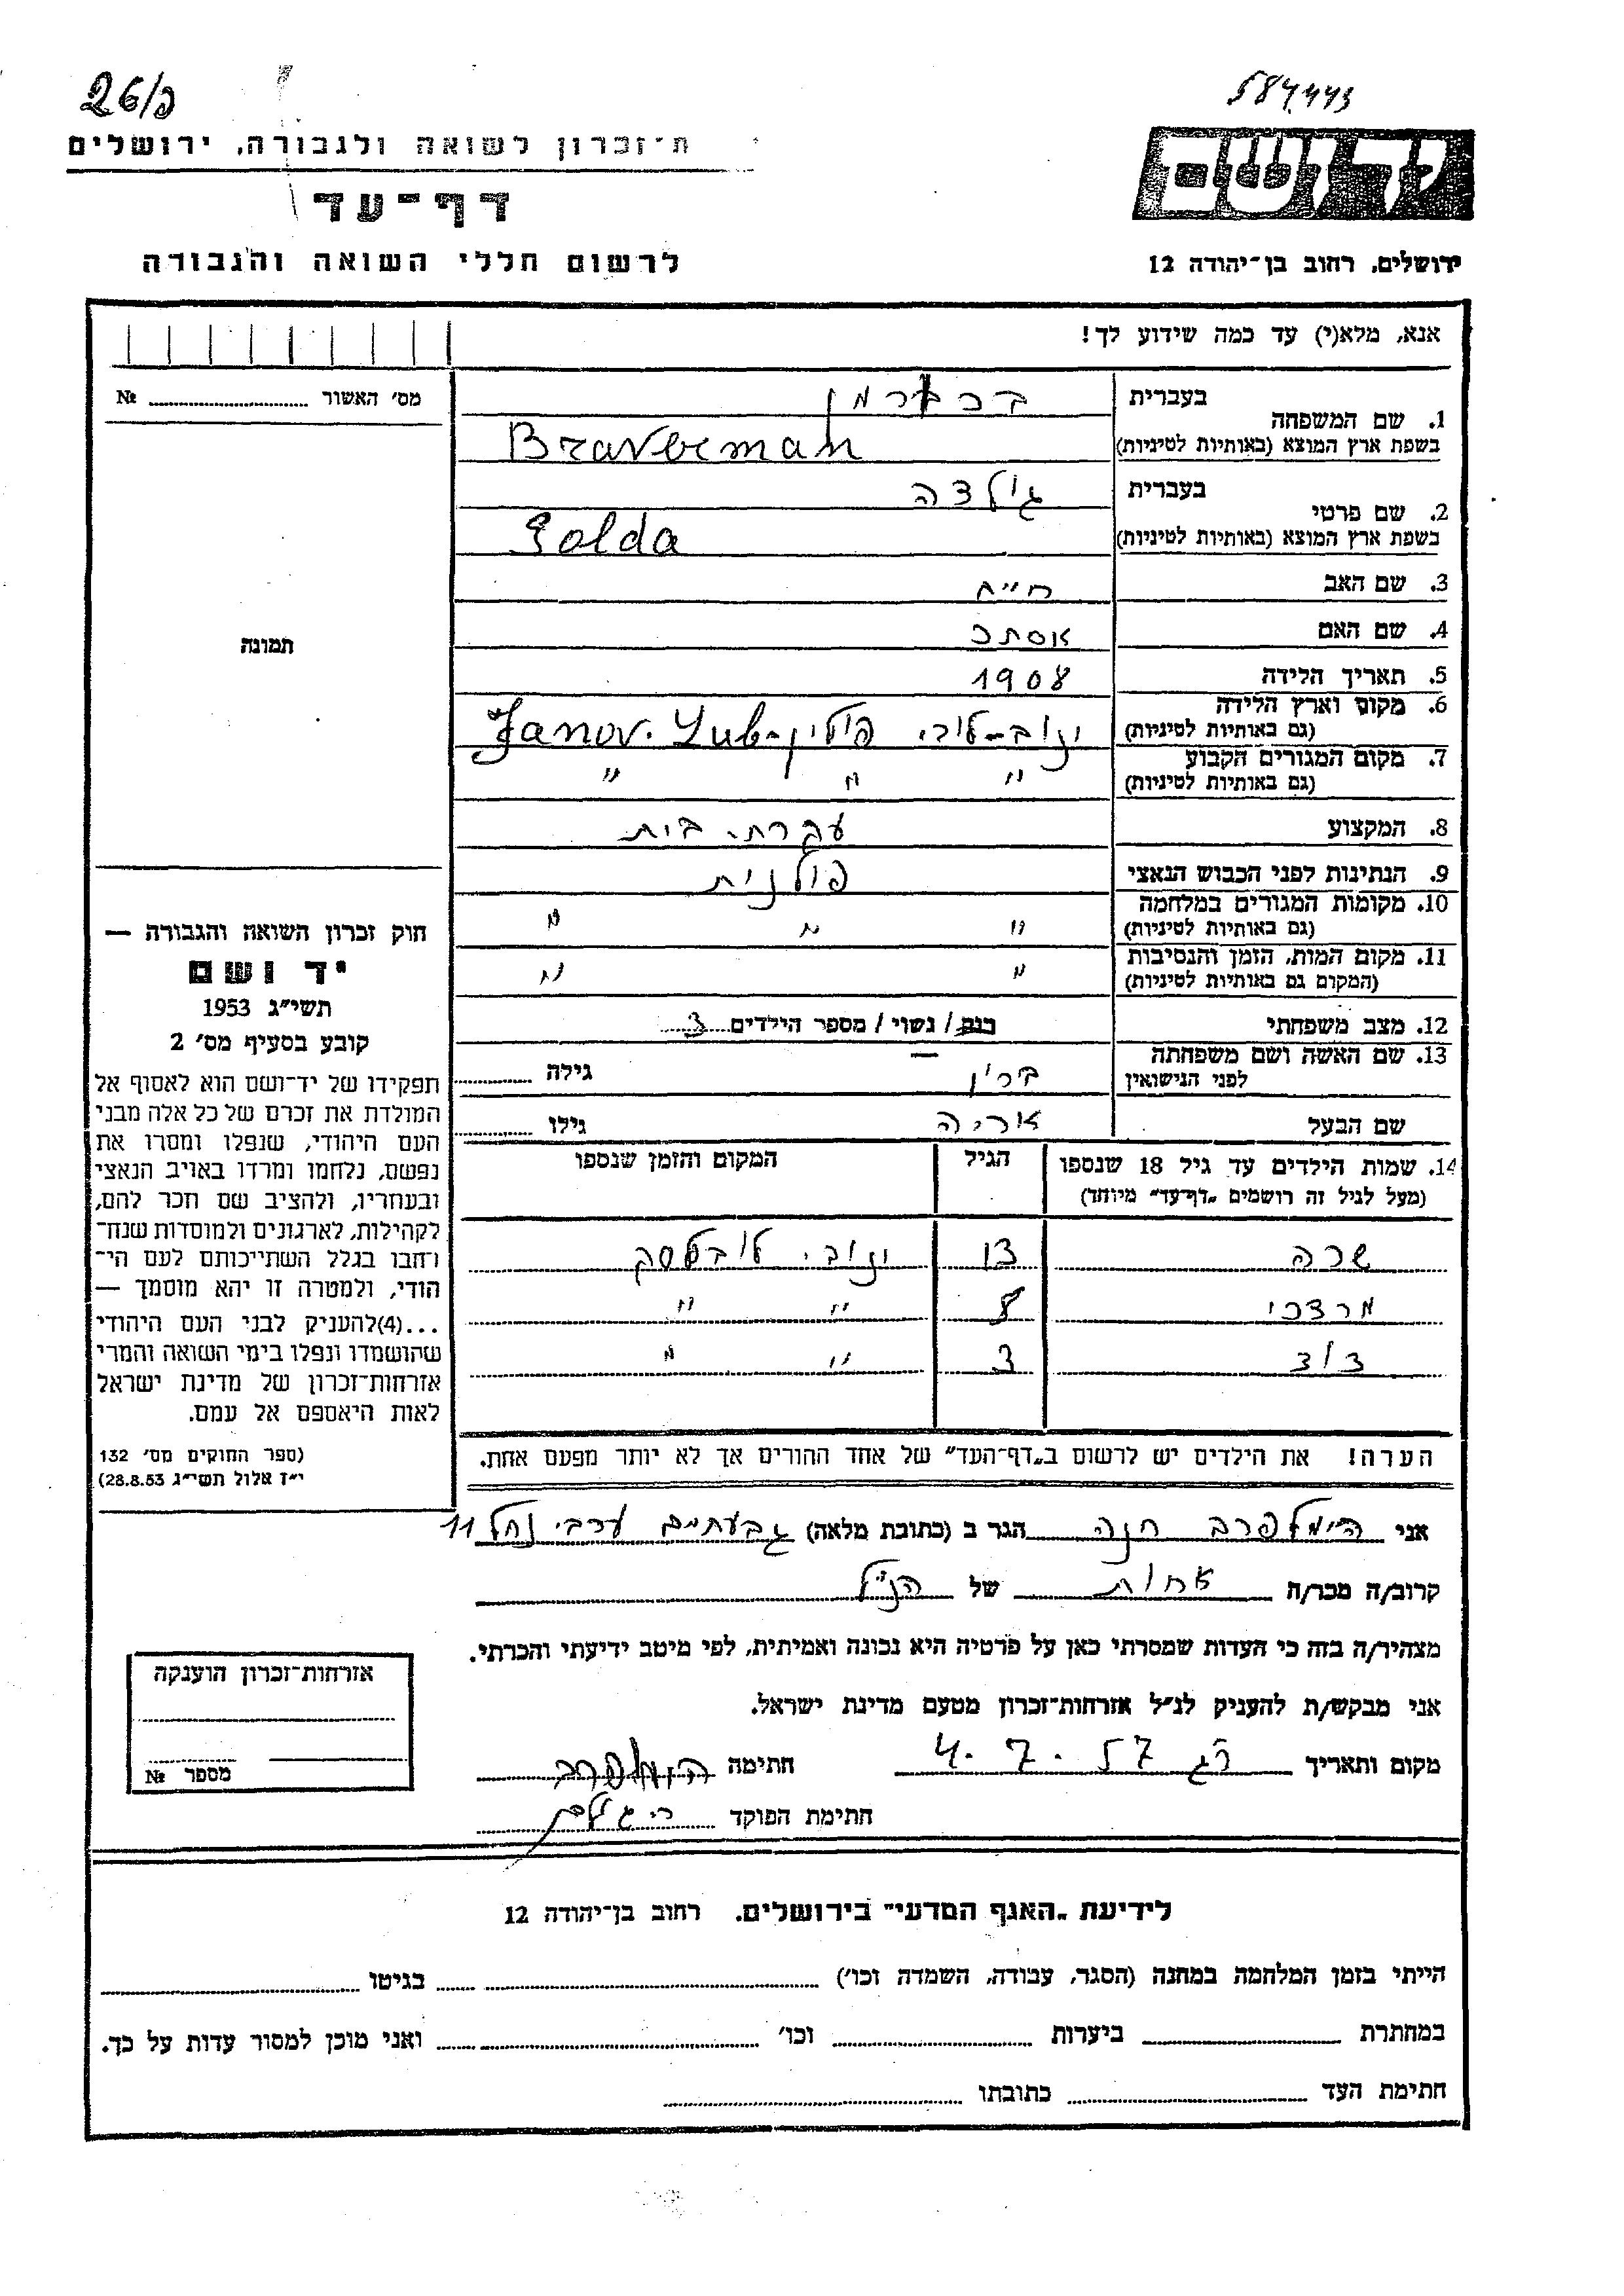 26/כ
587443
ת־זכרון לשואה ולגבורה, ירושלים
דף־עד
לרשום חללי השואה והגבורה
ירושלים, רחוב בן־יהודה 12
אנא, מלא(י) עד כמה שידוע לך!
מס׳ האשור № 
1. שם המשפחה
בעברית ברברמן
בשפת ארץ המוצא (באותיות לטיניות) Braverman
2. שם פרטי
בעברית גולדה
בשפת ארץ המוצא (באותיות לטיניות) Golda
3. שם האב חיים
4. שם האם אסתר
5. תאריך הלידה 1908
6. מקום וארץ הלידה
(גם באותיות לטיניות) ינוב-לובי פולין-Janov. Lub
7. מקום המגורים הקבוע
(גם באותיות לטיניות) " " "
8. המקצוע עקרת בית
9. הנתינות לפני הכבוש הנאצי פולנית
10. מקומות המגורים במלחמה
(גם באותיות לטיניות) " " "
11. מקום המות, הזמן והנסיבות
(המקום גם באותיות לטיניות) " "
12. מצב משפחתי רווק/ נשוי/ מספר הילדים 3
13. שם האשה ושם משפחתה
לפני הנישואין ברון גילה
שם הבעל אריה גילו
14. שמות הילדים עד גיל 18 שנספו הגיל המקום והזמן שנספו
(מעל לגיל זה רושמים „דף־עד״ מיוחד)
שרה 13 ינובי לובלסק
מרדכי 8 " "
דוד 3 " "
הערה! את הילדים יש לרשום ב„דף־העד״ של אחד ההורים אך לא יותר מפעם אחת.
תמונה
חוק זכרון השואה והגבורה —
יד ושם
תשי״ג 1953
קובע בסעיף מס׳ 2
תפקידו של יד־ושם הוא לאסוף אל
המולדת את זכרם של כל אלה מבני
העם היהודי, שנפלו ומסרו את
נפשם, נלחמו ומרדו באויב הנאצי
ובעוזריו, ולהציב שם וזכר להם,
לקהילות, לארגונים ולמוסדות שנח־
רבו בגלל השתייכותם לעם הי־
הודי, ולמטרה זו יהא מוסמך —
...(4)להעניק לבני העם היהודי
שהושמדו ונפלו בימי השואה והמרי
אזרחות־זכרון של מדינת ישראל
לאות היאספם אל עמם.
(ספר החוקים מס׳ 132
י״ז אלול תשי״ג 28.8.53)
אני הימלפרב חנה הגר ב (כתובת מלאה) גבעתיים ערבי נחל 11
קרוב/ה מכר/ה אחות של הנ״ל
מצהיר/ה בזה כי העדות שמסרתי כאן על פרטיה היא נכונה ואמיתית, לפי מיטב ידיעתי והכרתי.
אני מבקש/ת להעניק לנ״ל אזרחות־זכרון מטעם מדינת ישראל.
מקום ותאריך רג 4.7.57 חתימה הימלפרב
חתימת הפוקד
אזרחות־זכרון הוענקה
מספר №
לידיעת „האגף המדעי״ בירושלים, רחוב בן־יהודה 12
הייתי בזמן המלחמה במחנה (הסגר, עבודה, השמדה וכו׳) בגיטו
במחתרת ביערות וכו׳ ואני מוכן למסור עדות על כך.
חתימת העד כתובתו